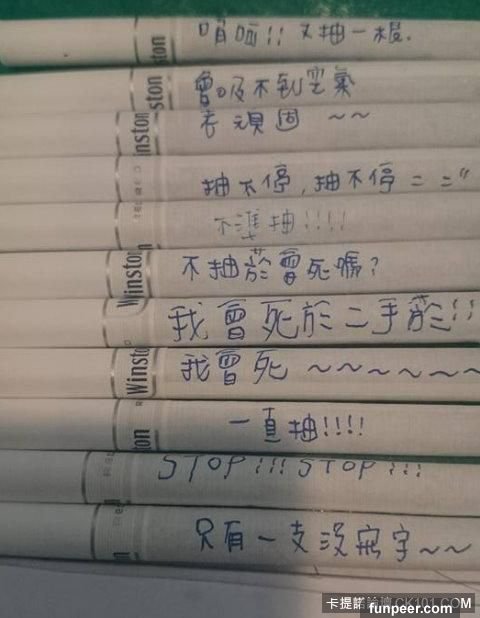 唷呵!! 又抽一根.
ston
會吸不到空氣
ston
老頑固 ~~
inston
抽不停,抽不停 = ="
不準抽!!!!
不抽菸會死嗎?
Winston
我會死於二手菸!!
我會死 ~~~~~~
Winston
一直抽!!!!
ton
STOP!!! STOP!!!
只有一支沒寫字~~
卡提諾論壇 CK101.COM
funpeer.com